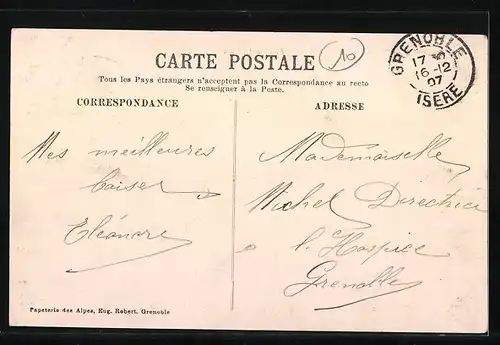 CARTE POSTALE
10
Tous les Pays étrangers n'acceptent pas la Correspondance au recto
Se renseigner à la Poste.
GRENOBLE
17
16-12
07
ISÈRE
CORRESPONDANCE
ADRESSE
Mes meilleures
baiser
Eléonore
Mademoiselle
Michel Directrice
l'Hospice
Grenoble
Papeterie des Alpes, Eug. Robert, Grenoble